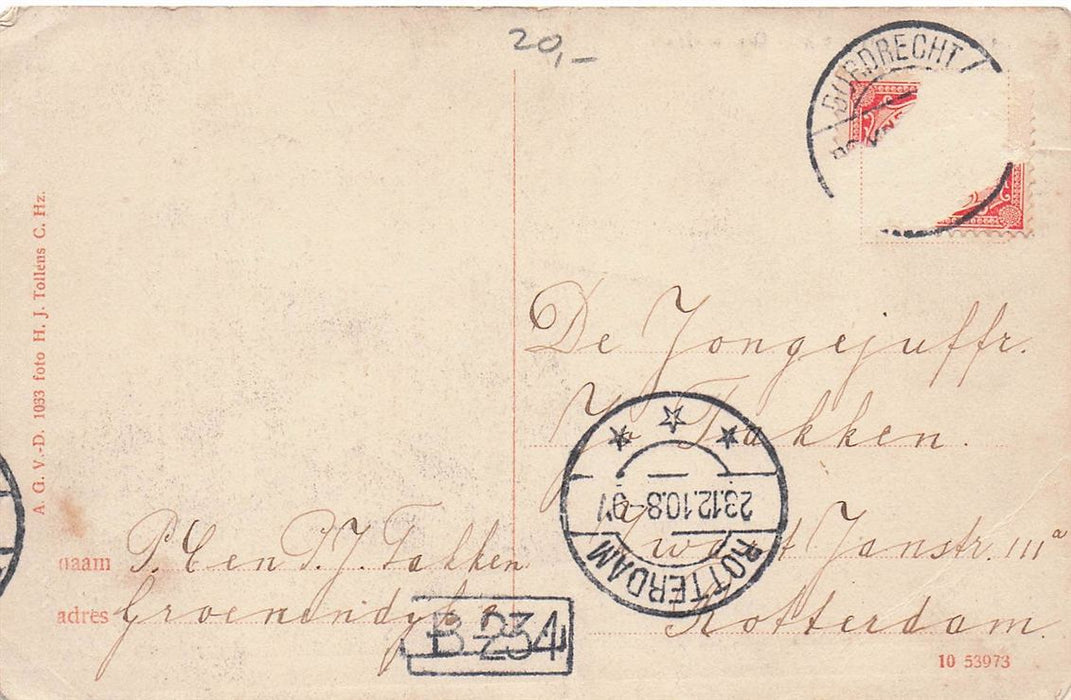 20,-
DORDRECHT
A. G. V.-D. 1033 foto H. J. Tollens C. Hz.
De Jongejuffr.
Takken.
23.12.10.8-9V
ROTTERDAM
Zwart Janstr. 111a
Rotterdam.
naam P. C en P. J. Takken
adres Groenendijk
B 234
10 53973